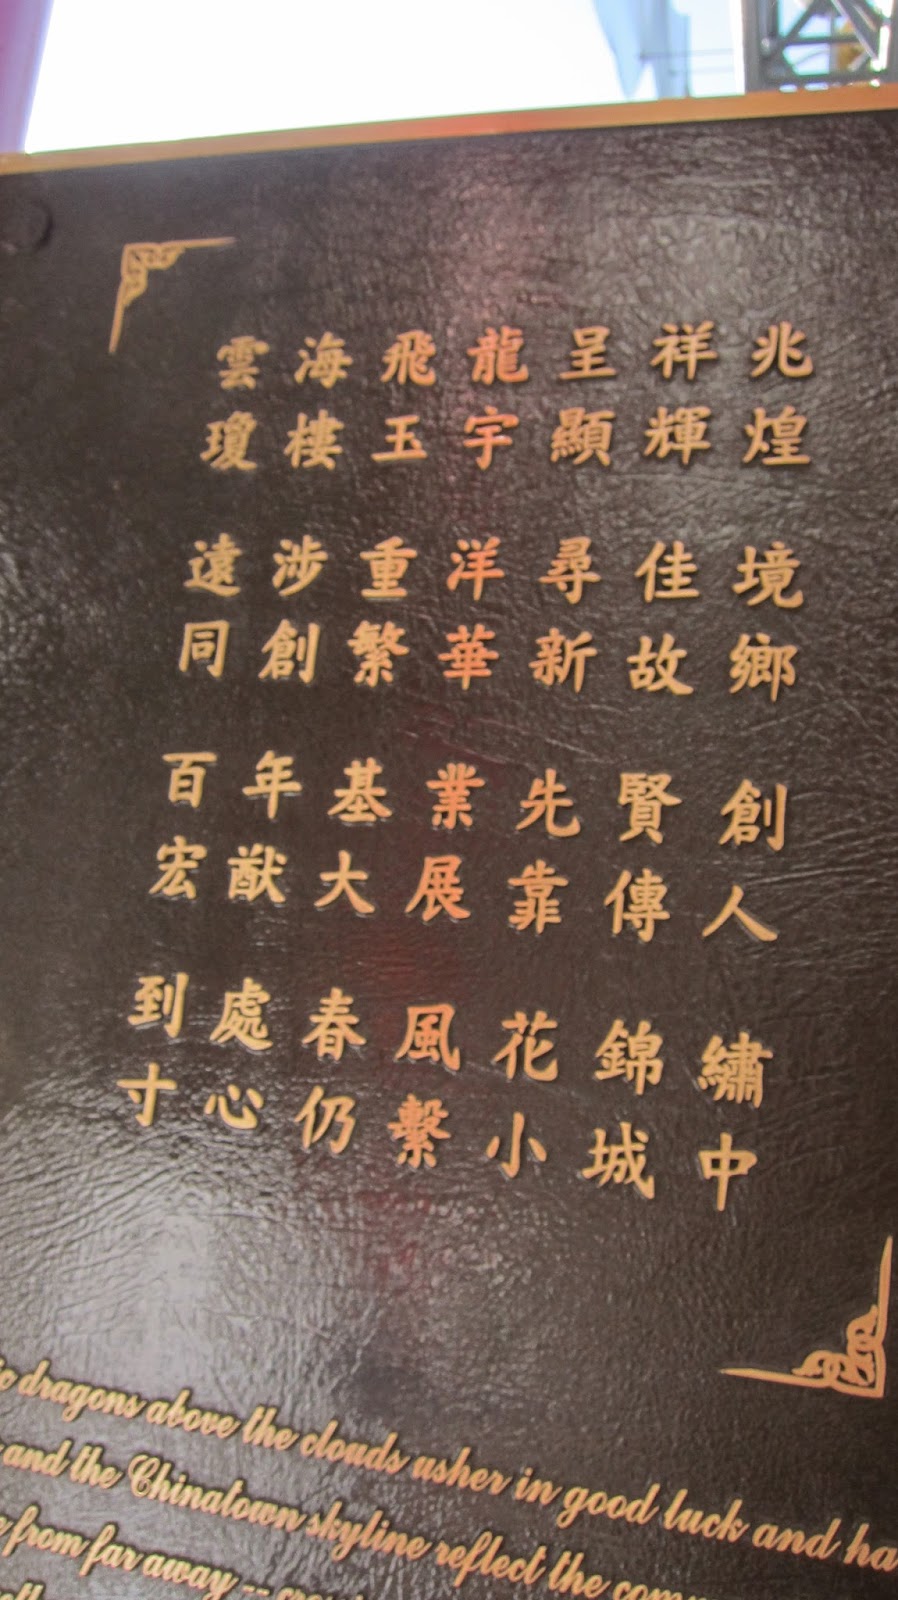 雲海飛龍呈祥兆
瓊樓玉宇顯輝煌
遠涉重洋尋佳境
同創繁華新故鄉
百年基業先賢創
宏猷大展靠傳人
到處春風花錦繡
寸心仍繫小城中
dragons above the clouds usher in good luck and
and the Chinatown skyline reflect the
from far away --